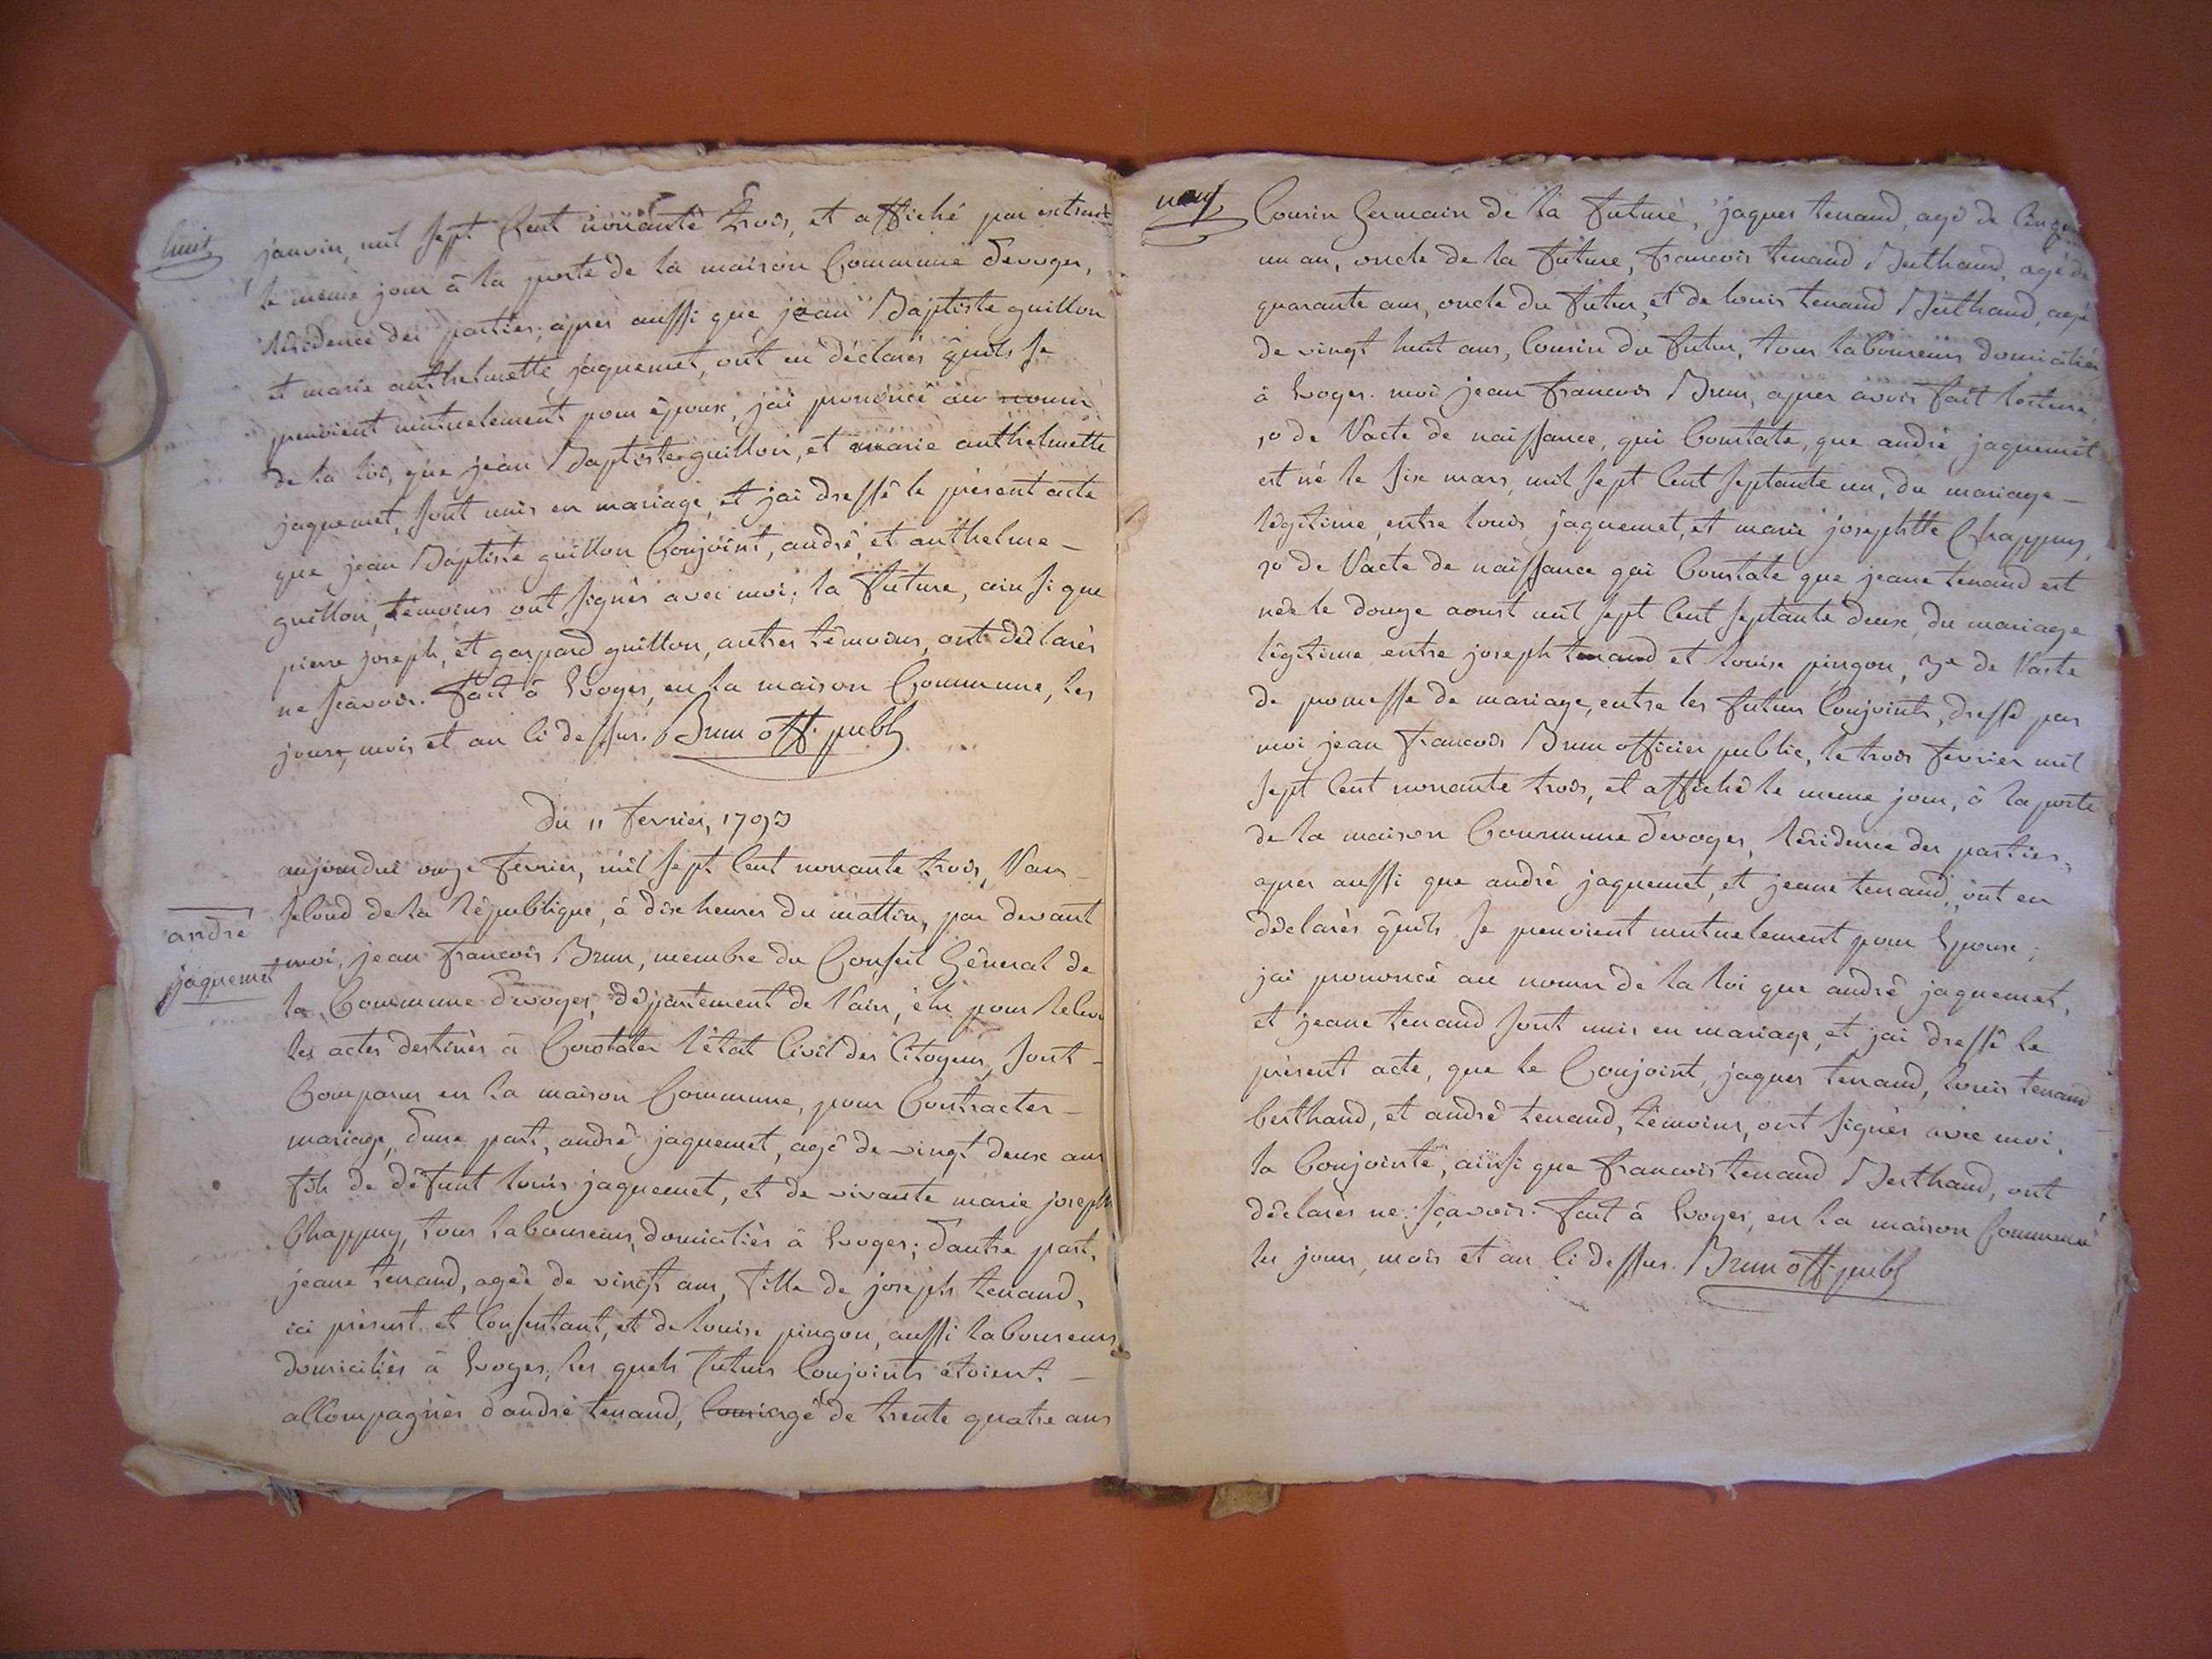 huit
janvier, mil sept cent nonante trois, et affiché par extrait
le meme jour à la porte de la maison Commune devoges,
résidence des parties; après aussi que jean Baptiste guillon
et marie anthelmette jaquemet, ont eu déclarés quils se
prenoient mutuelement pour époux, jai prononcé au nomm
de la loi, que jean Baptiste guillon, et marie anthelmette
jaquemet, sont unis en mariage, et jai dressé le présent acte
que jean Baptiste guillon Conjoint, andré, et anthelme -
guillon, témoins ont signés avec moi; la future, ainsi que
pierre joseph, et gaspard guillon, autres témoins, ont déclarés
ne scavoir. fait à Evoges, en la maison Commune, les
jours, mois et an ci dessus. Brun off. publ
Du 11 fevrier, 1793
aujourdui onze fevrier, mil sept cent nonante trois, l'an -
second de la république, à dix heures du mattin, par devant
andré
jaquemet
moi, jean francois Brun, membre du Conseil Géneral de
la Commune devoges, département de l'ain, élu pour
les actes destinés à Constater l'état Civil des Citoyens, sont -
Comparus en la maison Commune, pour Contracter -
mariage, dune part, andré jaquemet, agé de vingt deux ans
fils de défunt louis jaquemet, et de vivante marie joseph
Chappuy, tous laboureurs, domiciliés à Evoges; dautre part,
jeane tenand, agée de vingt ans, fille de joseph tenand,
ici présent et Consentant, et de louise pingon, aussi laboureurs,
domiciliés à Evoges; les quels futurs Conjoints étoient -
accompagnés dandré tenand, agé de trente quatre ans
neuf
Cousin Germain de la future, jaques tenand, agé de
un an, oncle de la future, francois tenand Berthand, agé de
quarante ans, oncle du futur, et de louis tenand Berthand, agé
de vingt huit ans, Cousin du futur, tous laboureurs domiciliés
à Evoges. moi jean francois Brun, apres avoir fait lecture,
1o de l'acte de naissance, qui Constate, que andré jaquemet
est né le six mars, mil sept cent septante un, du mariage -
légitime, entre louis jaquemet, et marie josephtte Chappuy,
2o de l'acte de naissance qui Constate que jeane tenand est
née le douze aoust mil sept cent septante deux, du mariage
légitime entre joseph tenand et louise pingon, 3e de l'acte
de promesse de mariage, entre les futurs Conjoints, dressé par
moi jean francois Brun officier public, le trois fevrier mil
sept cent nonante trois, et affiché le meme jour, à la porte
de la maison Commune devoges, résidence des parties,
apres aussi que andré jaquemet, et jeane tenand, ont eu
déclarés quils se prenoient mutuelement pour Epoux;
jai prononcé au nomm de la loi que andré jaquemet,
et jeane tenand sont unis en mariage, et jai dressé le
présent acte, que le Conjoint, jaques tenand, louis tenand
berthand, et andré tenand, témoins, ont signés avec moi.
la Conjointe, ainsi que francois tenand Berthand, ont
déclarés ne scavoir. fait à Evoges, en la maison Commune
les jours, mois et an ci dessus. Brun off. publ